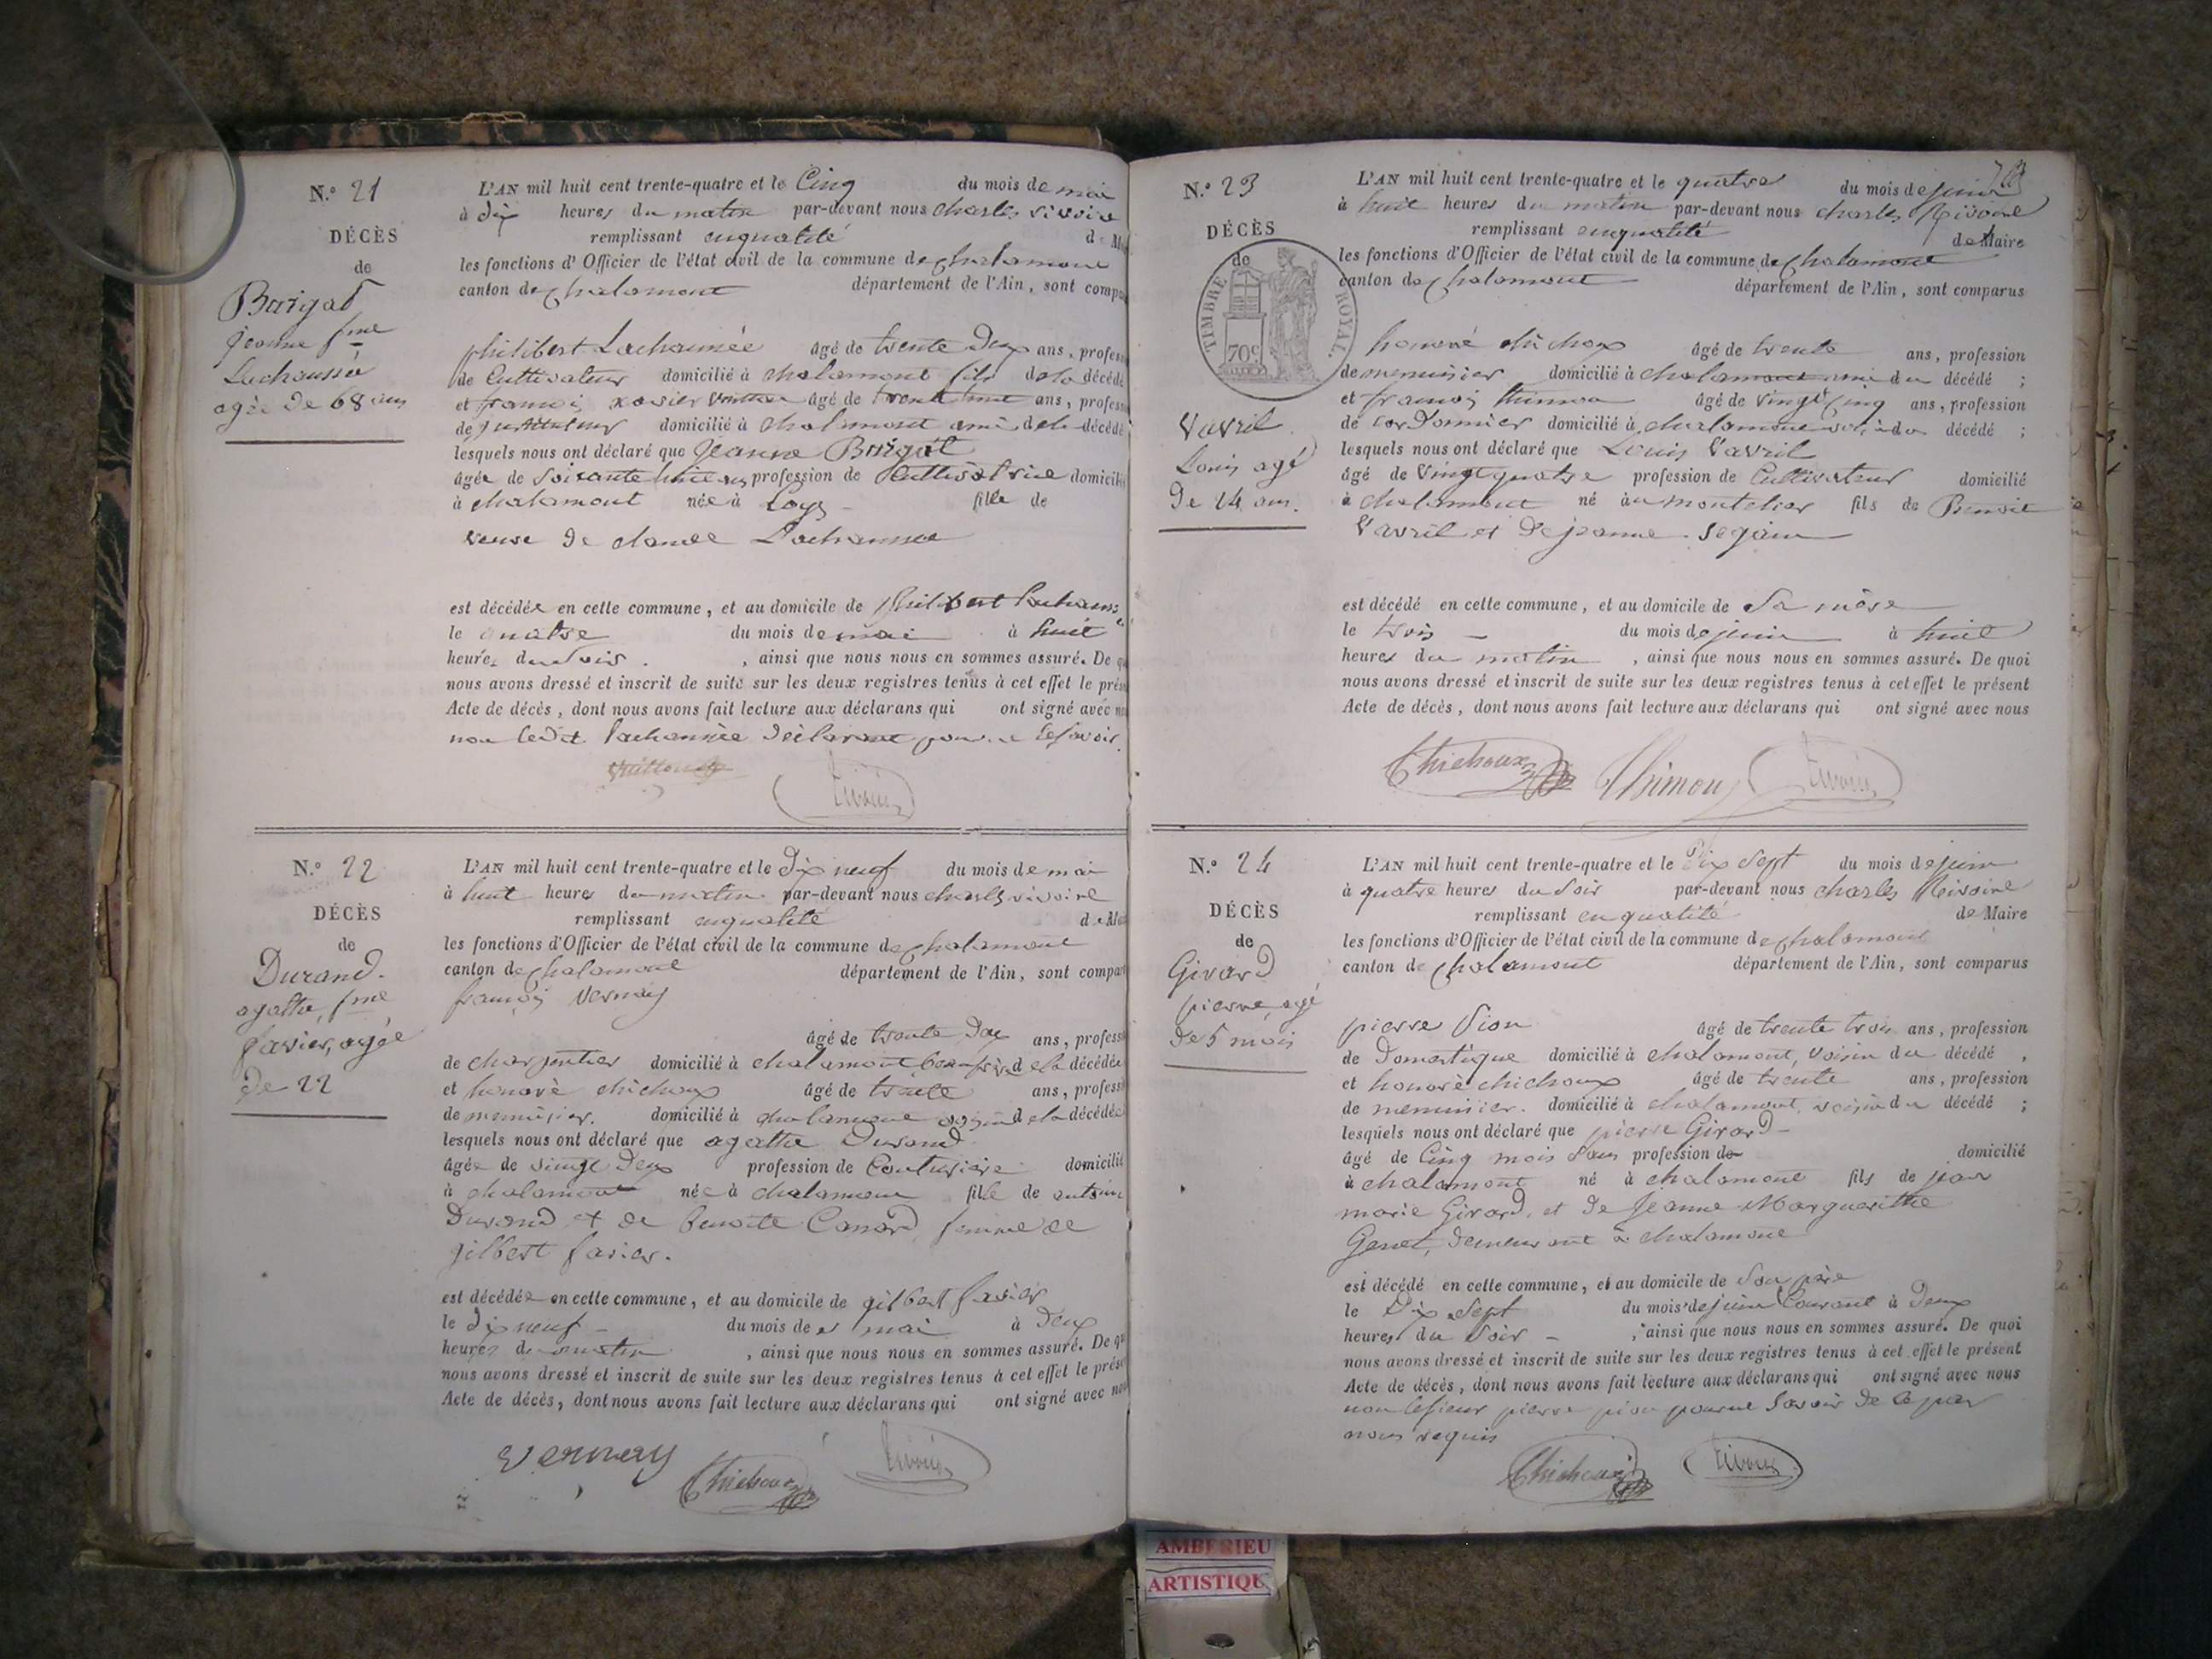 N.º 21
DÉCÈS
de
Barizat
jeanne fme
Lachaussée
agée de 68 ans
L'AN mil huit cent trente-quatre et le Cinq du mois de mai
à dix heures du matin par-devant nous charles rivoire
remplissant enqualité de
les fonctions d'Officier de l'état civil de la commune de chalamont
canton de chalamont département de l'Ain, sont compa
philibert Lachaussée âgé de trente Deux ans, profes
de Cultivateur domicilié à chalamont fils de la décédé
et françois xavier âgé de ans, profes
de instituteur domicilié à chalamont ami de la décédé
lesquels nous ont déclaré que jeanne Barizat
âgée de Soixante huit ans profession de Cultivatrice domicilié
à chalamont née à Loyes fille de
veuve de claude Lachaussée
est décédée en cette commune, et au domicile de philibert Lachauss
le quatre du mois de mai à huit
heures du Soir, ainsi que nous nous en sommes assuré. De q
nous avons dressé et inscrit de suite sur les deux registres tenus à cet effet le prés
Acte de décès, dont nous avons fait lecture aux déclarans qui ont signé avec n
non ledit Lachaussée déclarant pour ne le savoir.
Rivoire
N.º 22
DÉCÈS
de
Durand.
agathe, fme
favier, agée
de 22
L'AN mil huit cent trente-quatre et le dix neuf du mois de mai
à huit heures du matin par-devant nous charles rivoire
remplissant enqualité de Ma
les fonctions d'Officier de l'état civil de la commune de chalamont
canton de chalamont département de l'Ain, sont compar
françois Vernay
âgé de trente Deux ans, profess
de charpentier domicilié à chalamont beaufrère de la décédée
et honoré chichoux âgé de trente ans, profess
de menuisier. domicilié à chalamont voisin de la décédée
lesquels nous ont déclaré que agathe Durand
âgée de vingt Deux profession de Couturière domicilié
à chalamont née à chalamont fille de antoine
Durand et de benoite Canard femme de
gilbert favier.
est décédée en cette commune, et au domicile de gilbert favier
le dix neuf du mois de mai à Deux
heures du matin, ainsi que nous nous en sommes assuré. De qu
nous avons dressé et inscrit de suite sur les deux registres tenus à cet effet le prése
Acte de décès, dont nous avons fait lecture aux déclarans qui ont signé avec nou
Vernay Chichoux Rivoire
N.º 23
DÉCÈS
de
TIMBRE ROYAL.
70c
Vavril
Louis agé
De 24 ans.
L'AN mil huit cent trente-quatre et le quatre du mois de juin
à huit heures du matin par-devant nous charles Rivoire
remplissant enqualité de Maire
les fonctions d'Officier de l'état civil de la commune de chalamont
canton de chalamont département de l'Ain, sont comparus
honoré chichoux âgé de trente ans, profession
de menuisier domicilié à chalamont ami du décédé ;
et françois thimon âgé de vingt cinq ans, profession
de cordonnier domicilié à chalamont voisin du décédé ;
lesquels nous ont déclaré que Louis Vavril
âgé de Vingt quatre profession de Cultivateur domicilié
à chalamont né au montelier fils de Benoit
Vavril et De jeanne
est décédé en cette commune, et au domicile de Sa mère
le trois du mois de juin à huit
heures du matin, ainsi que nous nous en sommes assuré. De quoi
nous avons dressé et inscrit de suite sur les deux registres tenus à cet effet le présent
Acte de décès, dont nous avons fait lecture aux déclarans qui ont signé avec nous
Chichoux Thimon Rivoire
N.º 24
DÉCÈS
de
Girard
pierre, agé
de 5 mois
L'AN mil huit cent trente-quatre et le Dix Sept du mois de juin
à quatre heures du Soir par-devant nous charles Rivoire
remplissant en qualité de Maire
les fonctions d'Officier de l'état civil de la commune de chalamont
canton de chalamont département de l'Ain, sont comparus
pierre Pion âgé de trente trois ans, profession
de Domestique domicilié à chalamont, voisin du décédé,
et honoré chichoux âgé de trente ans, profession
de menuisier. domicilié à chalamont, voisin du décédé ;
lesquels nous ont déclaré que pierre Girard
âgé de Cinq mois Sans profession de domicilié
à chalamont né à chalamont fils de jean
marie Girard, et de Jeanne Marguerithe
Genet, demeurant à chalamont
est décédé en cette commune, et au domicile de Son père
le Dix Sept du mois de juin Courant à Deux
heures du Soir, ainsi que nous nous en sommes assuré. De quoi
nous avons dressé et inscrit de suite sur les deux registres tenus à cet effet le présent
Acte de décès, dont nous avons fait lecture aux déclarans qui ont signé avec nous
non le sieur pierre pion pour ne Savoir de ce par
nous requis
Chichoux Rivoire
AMBERIEU
ARTISTIQUE